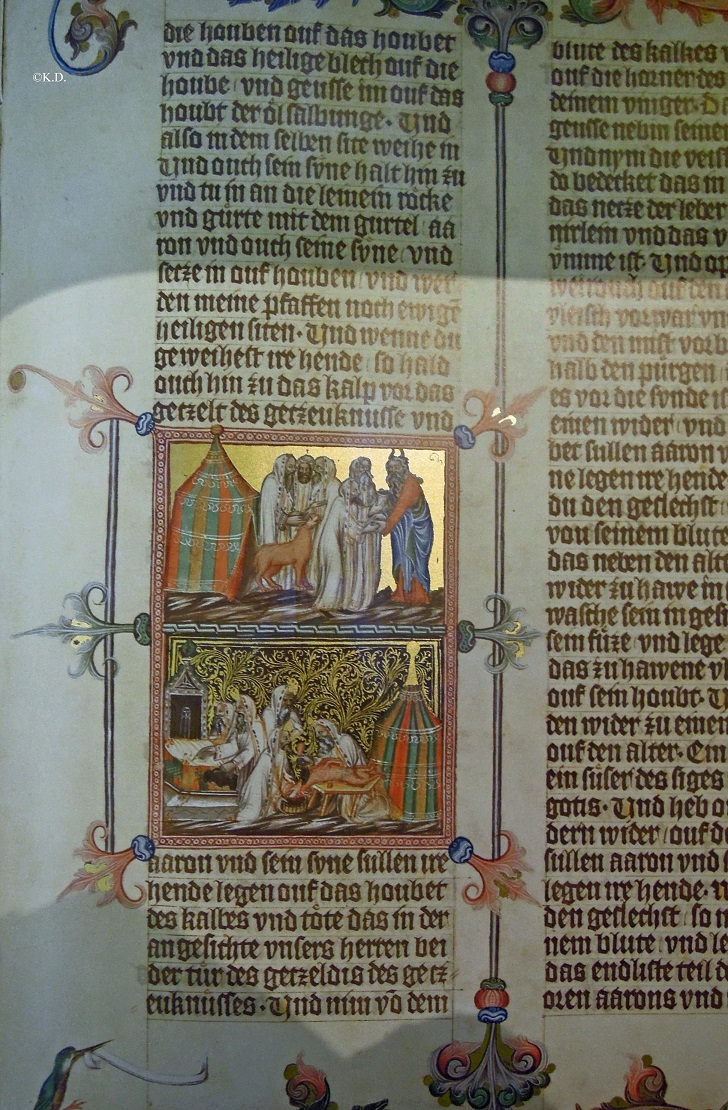 ©K.D.
die houben ouf das houbet
vnd das heilige blech ouf die
hoube / vnd geusse im ouf das
houbt der öl salbunge. Und
also in dem selben site weihe in
Und ouch sein syne halt hin zu
vnd tu in an die leinein röcke
vnd gürte mit dem gurtel aa
ron vnd ouch seine syne / vnd
setze in ouf houben / vnd wer
den meine pfaffen noch ewigē
heiligen siten. Und wenne du
geweihest ire hende / so hald
ouch hin zu das kalp vor das
getzelt des getzeuknusse vnd
aaron vnd sein syne sullen ire
hende legen ouf das houbet
des kalbes vnd töte das in der
angesichte vnsers herren bei
der tür des getzeldis des getz
euknüsses. Und nim vō dem
blute des kalbes
ouf die horner des
deinem vinger.
geusse nebin seine
Und nym die
do bedecket das in
das netze der leber
nirlein vnd das
ymme ist. Und
weirouch ouf den
vleisch vorwar
vnd den mist
halb den pürgen
es vor die sonde
einen wider / vnd
bet sullen aaron
ne legen ire hende
du den geslechst
von seinem blute
das neben den
wider zu hawe in
wasche sein in
sein füze / vnd lege
das zu hawene
ouf sein houbt.
den wider zu
ouf den alter. Em
ein süser des siges
gotis. Und heb
dern wider / ouf
sullen aaron vnd
legen ire hende.
den geslechst / so
nem blute / vnd
das endliste teil
oren aarons vnd